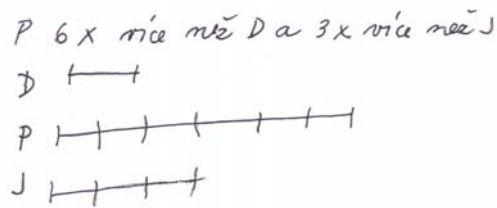 P 6x více než D a 3x více než J
D
P
J